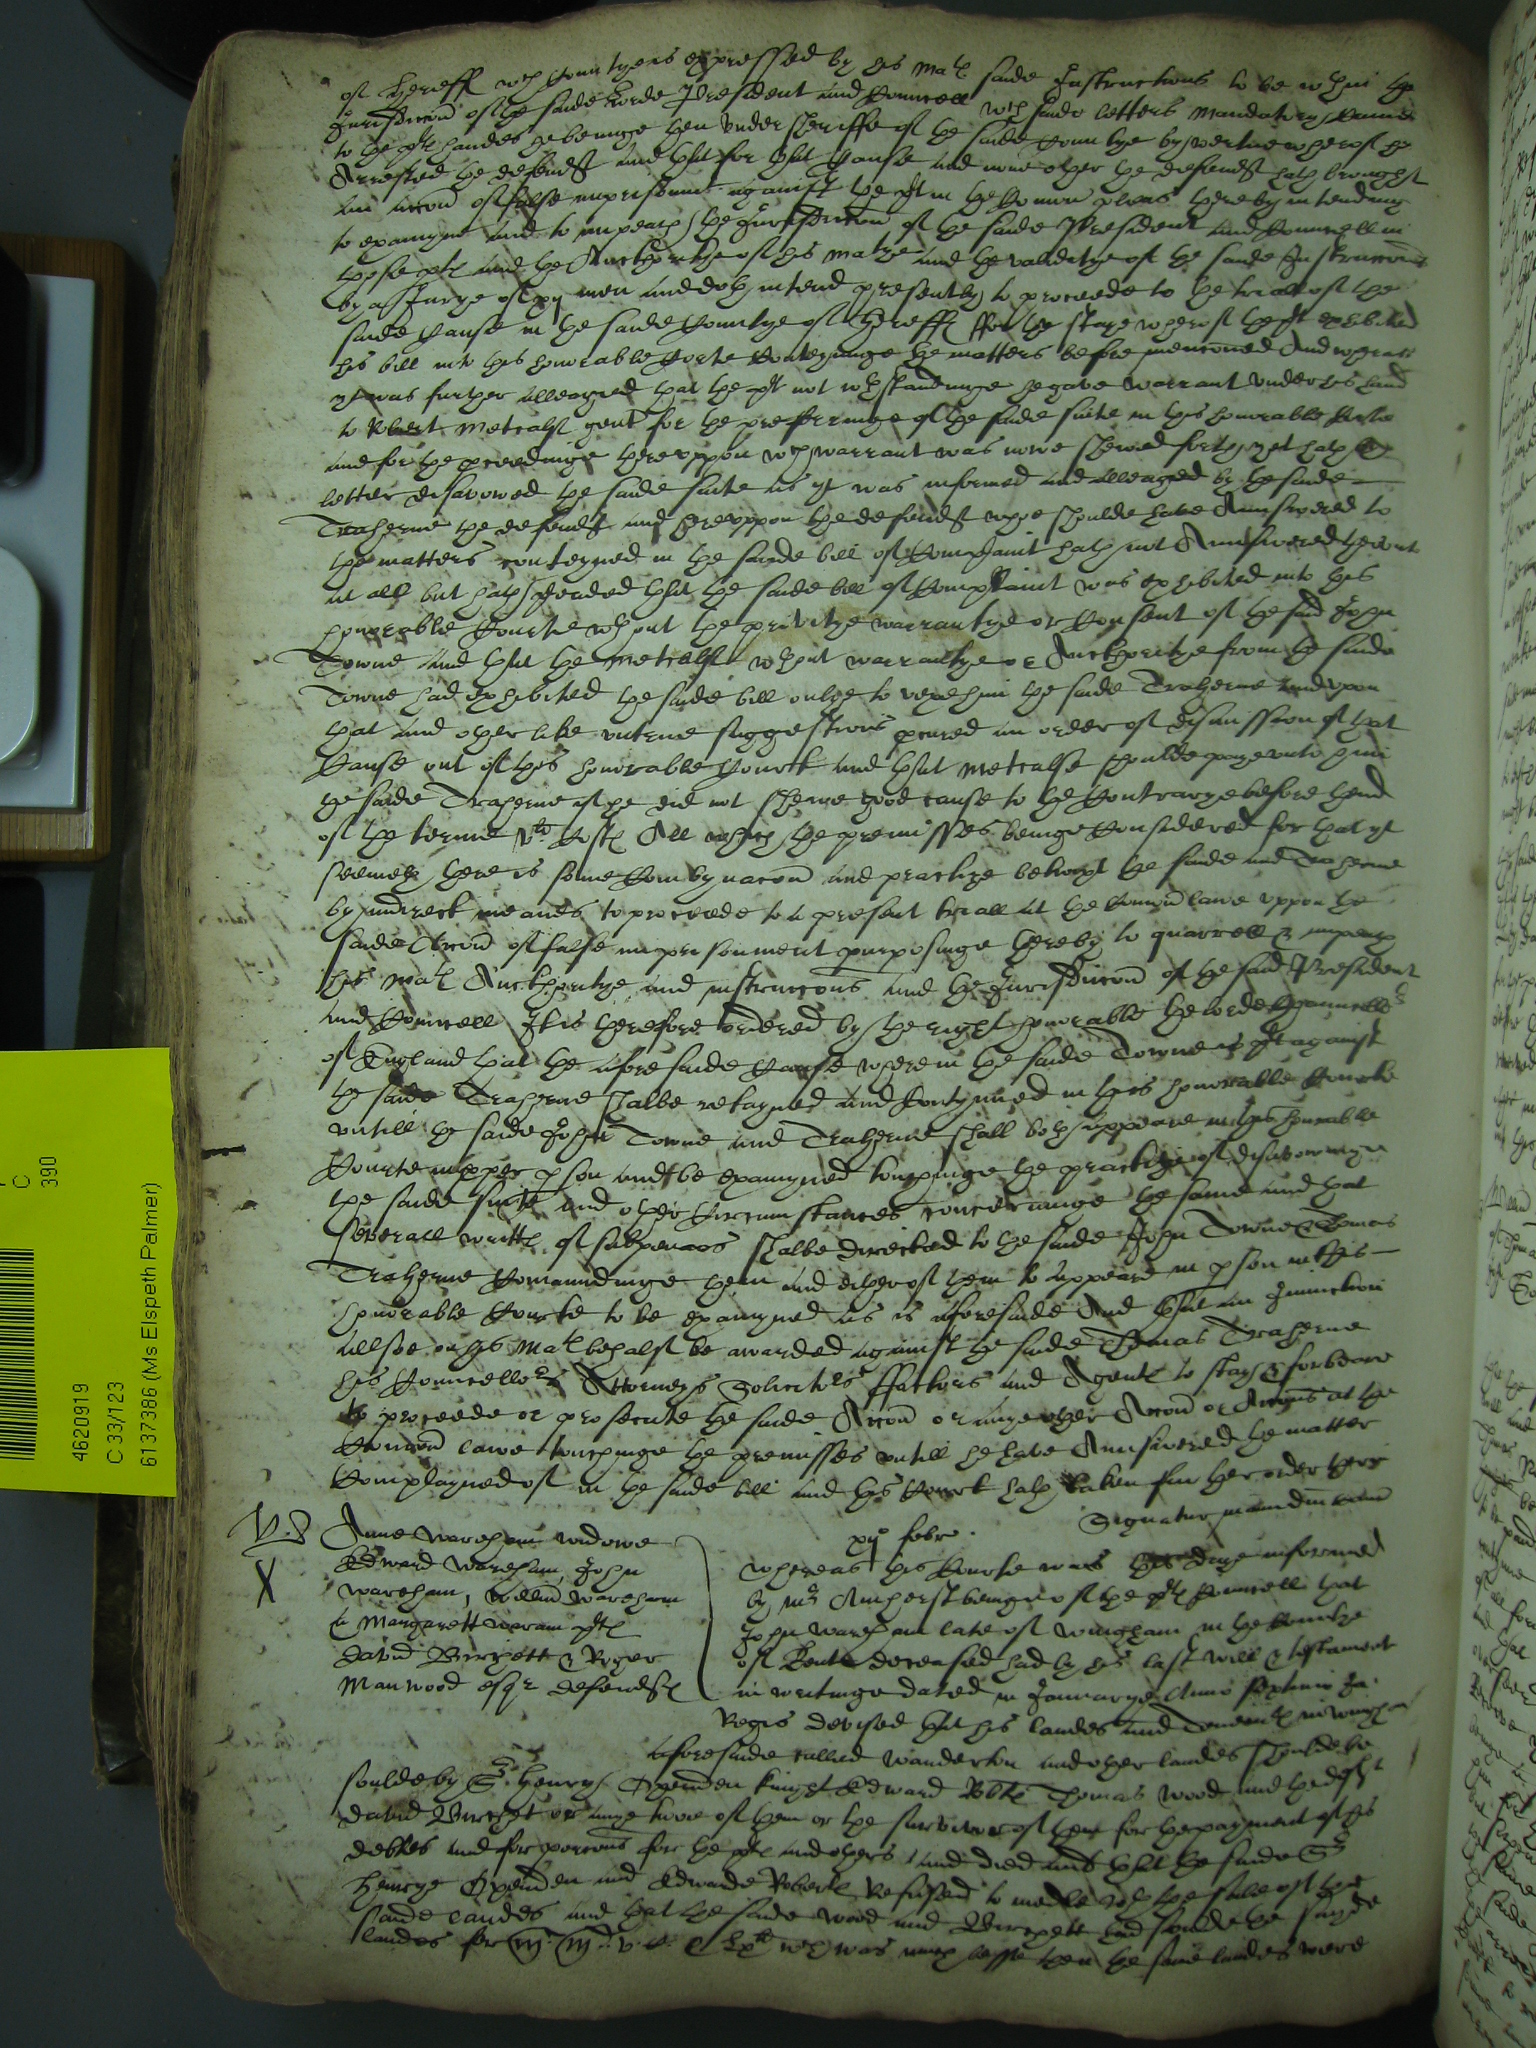 of Hereff wch Countyes expressed by his Matl saide Instructions to be wthin the
Jurisdiccon of the saide Lorde President and Councell wch saide letters mandatory came
to the pltl handes he beinge then under sheriffe of the saide Countye by vertue wherof he
Arrested the defendt and that for that cause and none other the defendt hath brought
an accon of false imprisonmt against the plt in the Comon pleas thereby intending
to examyne and to impeach the Jurisdiccon of the saide President and Councell in
those ptl and the Aucthoritye of his matye and the validitye of the saide Instruccons
by a Jurye of xij men and doth intend presently to proceede to the triall of the
saide cause in the saide Countye of Hereff for the staye wherof the plt exhibited
his bill into this honorable Corte Conteyninge the matters before mencioned And wheras
yt was further alleaged that the plt not wthstandinge he gave warrant under his hand
to Robert Metcalf gent for the preferringe of the saide suite in this honorable Corte
and for the proceedinge thereuppon wch warrant was nowe shewed forth yet hath by
letter disavowed the saide suite as yt was informed and alleaged by the saide
Traherne the defendt and thereuppon the defendt whoe shoulde have Aunswered to
the matters conteyned in the saide bill of Complaint hath not Aunswered therunto
at all but hath pleaded that the saide bill of Complaint was exhibited into this
honorable Courte wthout the privitye warrantye or Consent of the said John
Towne and that the Metcalf wthout warrantye or Aucthoritye from the saide
Towne had exhibited the saide bill onlye to vexe him the saide Traherne and upon
that and other like untrue suggestions pcured an order of dismission of that
Cause out of this honorable Court and that Metcalfe shoulde paye unto him
the saide Traherne if he did not shewe good cause to the Contrarye before thend
of the terme vli Costl All which the premisses beinge Considered for that yt
seemeth there is some Combynacon and practize betwixt the saide and Traherne
by indirect meanes to proceede to a present triall at the comon lawe uppon the
saide Accon of false imprisonment purposinge thereby to quarrell & impeach
his Matl Aucthoritye and instruccons and the Jurisdiccon of the said President
and Councell It is therefore ordered by the right honorable the lorde Chauncellr
of England that the aforesaide Cause wherein the saide Towne is plt against
the saide Traherne shalbe retayned and Contynued in this honorable Courte
untill the saide John Towne and Traherne shall both appeare in this honorable
Courte in pper pson and be examyned touchinge the practize of disavowinge
the saide suite and other Circumstances concerninge the same and that
severall writtl of subpenaes shalbe directed to the saide John Towne & Thomas
Traherne Comaundinge them and either of them to appeare in pson in this
honorable Courte to be examyned as is aforesaide And that an Iniunction
allsoe on his Matl behalf be awarded against the saide Thomas Traherne
his Councellors Attorneys Solicitors ffactors and Agentl to stay & forbeare
to proceede or prosecute the saide Accon or anye other Accon or Accons at the
Comon lawe touchinge the premisses untill he have Aunswered the matter
Complayned of in the saide bill and this Court hath taken further order thern
Signatur
Anne Wareham widowe
Edward Wareham, John
Wareham, Willm Wareham
& Margarett Waram pltl
David Birchett & Roger
Manwood esqr defendtl
xijo febr.
Whereas this Courte was this daye informed
by mr Amherst beinge of the pltl Councell that
John Wareham late of Wingham in the Countye
of Kent deceased had by his last will & testament
in writinge dated in Januarye Anno septimo Ja:
Regis devised that his landes and Tenemtl in Wingham
aforesaide called Wanderton and other landes shoulde be
soulde by Sr Henry Oxenden knight Edward Robtl Thomas Wood and the deft
David Birchet or anye twoe of them or the survivor of them for the payment of his
debtes and for porcons for the pltl and others and died and that the saide Sr
Henrye Oxenden and Edwarde Robertl refused to medle wth the sale of the
saide landes and that the saide Wood and Birchett had soulde the saide
landes for wch was much lesse then the same landes were
4620919
C 33/123
6137386 (Ms Elspeth Palmer)
C
390